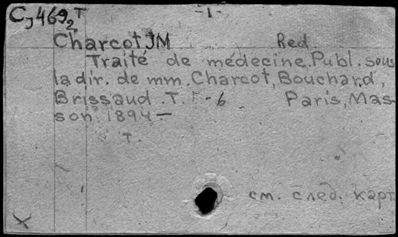 CJ469,2T -1-
Charcot JM Red.
Traité de médecine. Publ. sous
la dir. de mm. Charcot, Bouchard,
Brissaud. T. I-6 Paris, Mas-
son, 1894-
T.
см. след. карт